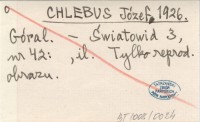 CHLEBUS Józef, 1926.
Góral. – Światowid 3,
nr 42: , il. Tylko reprod.
obrazu.